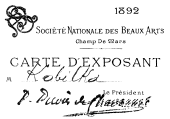 1892
SOCIÉTÉ NATIONALE DES BEAUX ARTS
Champ De Mars
CARTE D'EXPOSANT
M Kobilka
le Président
P. Puvis de Chavannes